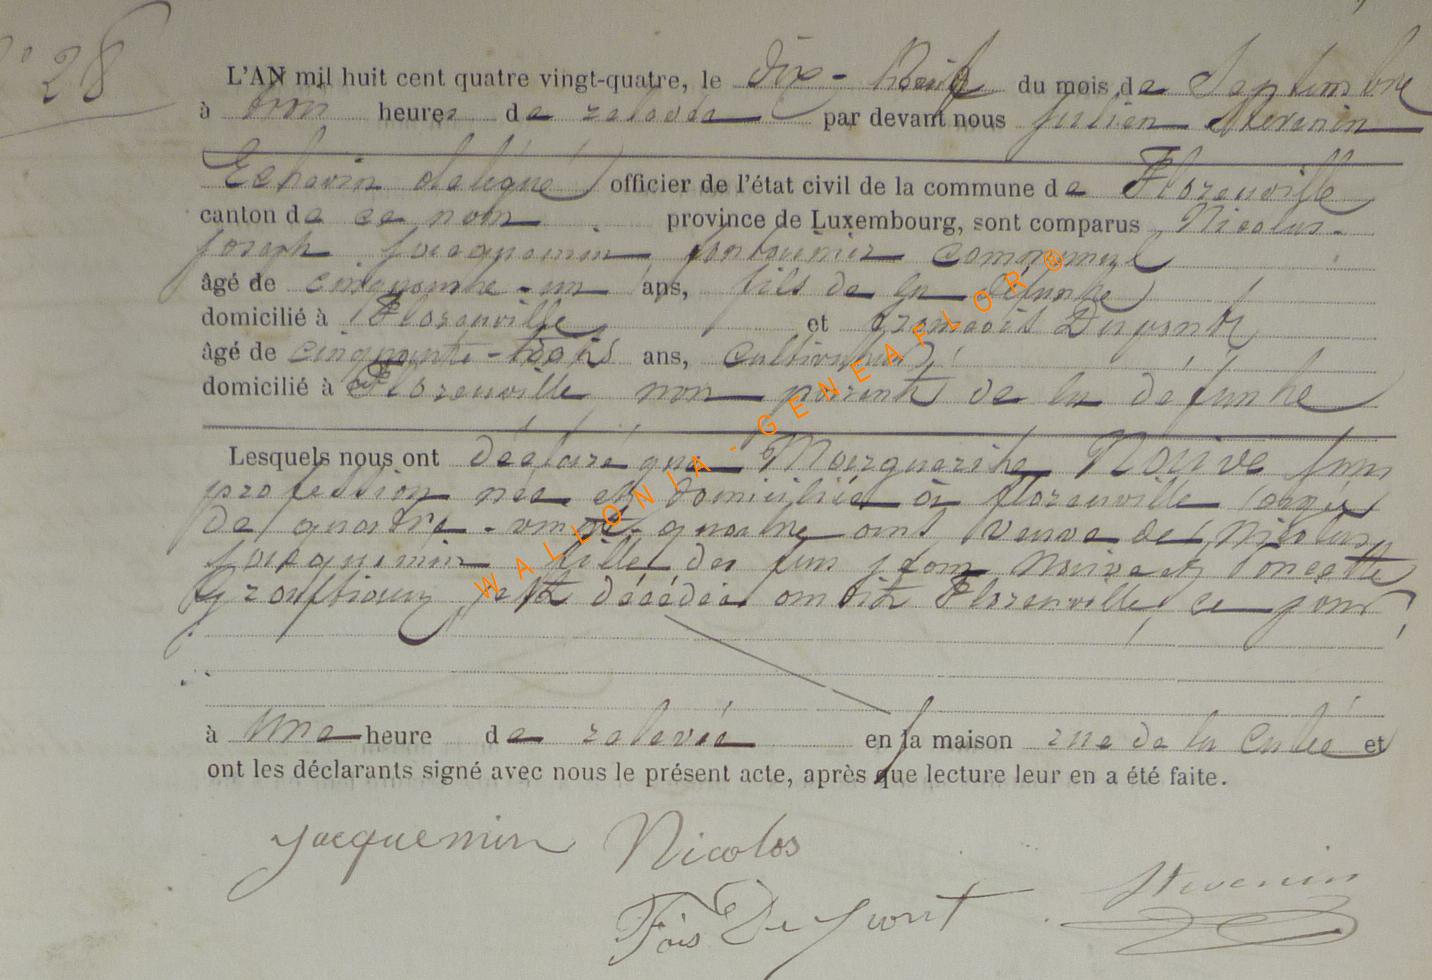 N° 28
L'AN mil huit cent quatre vingt-quatre, le dix-neuf du mois de Septembre
à trois heures de relevée par devant nous Julien Stevenin
Echevin délégué officier de l'état civil de la commune de Florenville
canton de ce nom province de Luxembourg, sont comparus Nicolas-
Joseph Jacquemin fontainier communal
âgé de cinquante-un ans, fils de la défunte
domicilié à Florenville et François Dupont
âgé de cinquante-trois ans, cultivateur
domicilié à Florenville, non parent de la défunte
Lesquels nous ont déclaré que Marguerite Noive sans
profession née et domiciliée à Florenville âgée
de quatre-vingt-quatre ans veuve de Nicolas
Jacquemin fille de feu Jean Noive et Poncette
est décédée audit Florenville, ce jour
à une heure de relevée en sa maison rue de la Culée et
ont les déclarants signé avec nous le présent acte, après que lecture leur en a été faite.
Jacquemin Nicolas
Fois Dupont Stevenin
WALLONIA - GENEAFLOR©